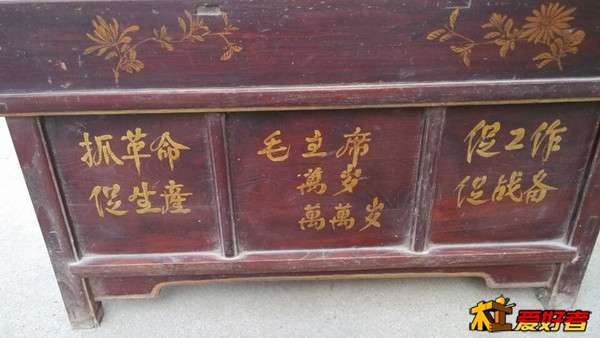 抓革命
促生產
毛主席
萬岁
萬萬岁
促工作
促战备
木工爱好者